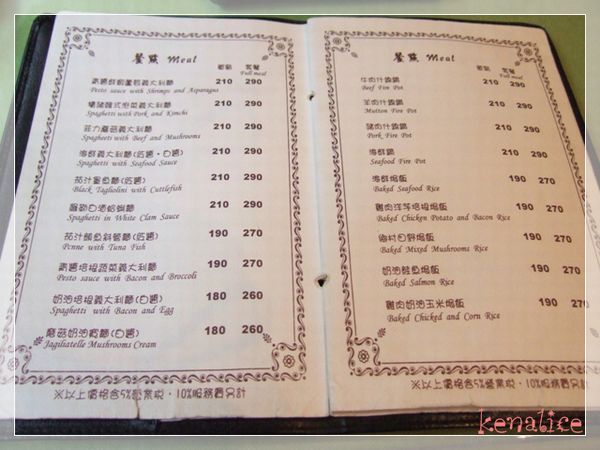 餐點 Meal
套餐
Full meal
青醬鮮蝦蘆筍義大利麵 210 290
Pesto sauce with Shrimps and Asparagus
韓式泡菜義大利麵 210 290
Spaghetti with Pork and Kimchi
菲力蘑菇義大利麵 210 290
Spaghetti with Beef and Mushrooms
海鮮義大利麵(紅醬·白醬) 210 290
Spaghetti with Seafood Sauce
茄汁墨魚麵(紅醬) 210 290
Black Tagliolini with Cuttlefish
白酒蛤蜊麵 210 290
Spaghetti in White Clam Sauce
茄汁鮪魚斜管麵(紅醬) 190 270
Penne with Tuna Fish
青醬培根蔬菜義大利麵 190 270
Pesto sauce with Bacon and Broccoli
奶油培根義大利麵(白醬) 180 260
Spaghetti with Bacon and Egg
蘑菇奶油寬麵(白醬) 180 260
Jagliatelle Mushrooms Cream
※以上價格含5%營業稅,10%服務費另計
餐點 Meal
套餐
Full meal
牛肉什錦鍋 210 290
Beef Fire Pot
羊肉什錦鍋 210 290
Mutton Fire Pot
豬肉什錦鍋 210 290
Pork Fire Pot
海鮮鍋 210 290
Seafood Fire Pot
海鮮焗飯 190 270
Baked Seafood Rice
雞肉洋芋培根焗飯 190 270
Baked Chicken Potato and Bacon Rice
鄉村田野焗飯 190 270
Baked Mixed Mushrooms Rice
奶油鮭魚焗飯 190 270
Baked Salmon Rice
雞肉奶油玉米焗飯 190 270
Baked Chicked and Corn Rice
※以上價格含5%營業稅,10%服務費另計
kenalice